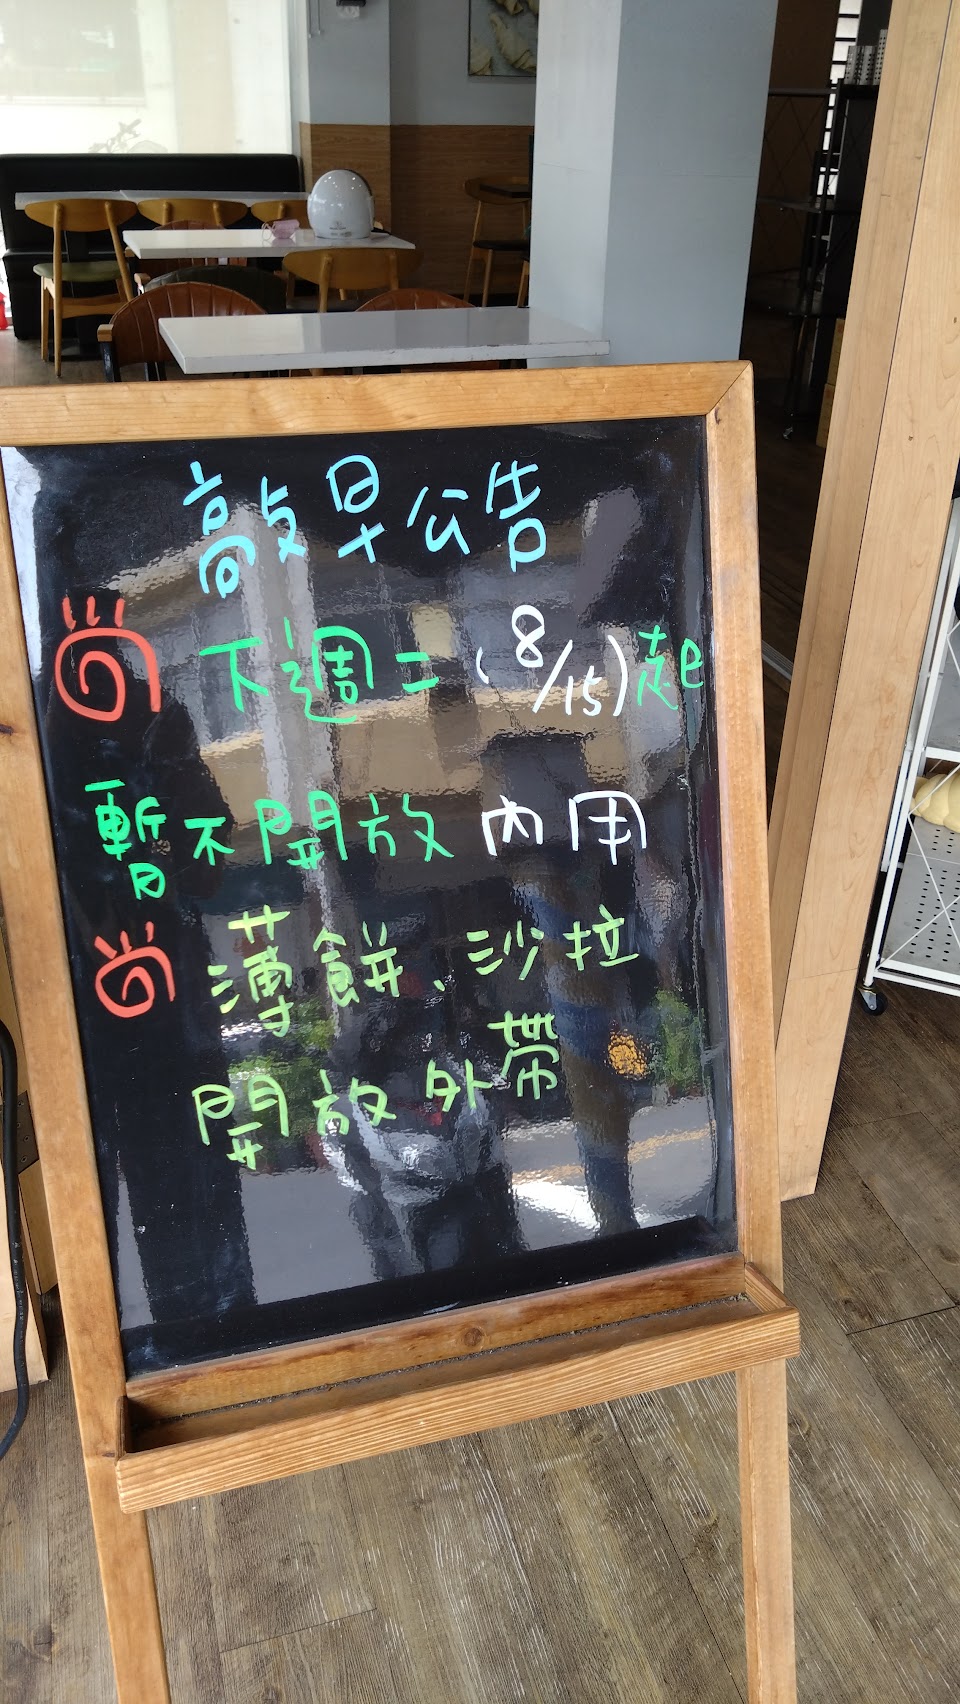 敲早公告
下週二(8/15)起
暫不開放內用
薄餅、沙拉
開放外帶